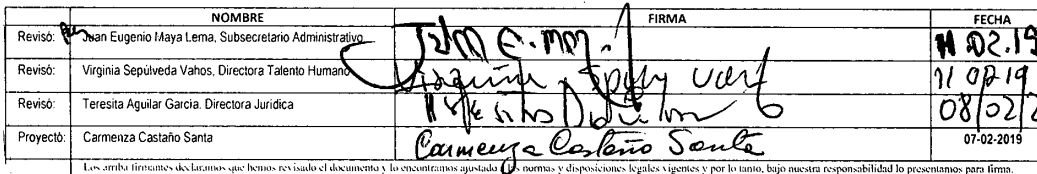 NOMBRE FIRMA FECHA
Revisó: Juan Eugenio Maya Lema, Subsecretario Administrativo 11.02.19
Revisó: Virginia Sepúlveda Vahos, Directora Talento Humano 11 02 19
Revisó: Teresita Aguilar Garcia. Directora Juridica 08/02/2
Proyectó: Carmenza Castaño Santa Carmenza Castaño Santa 07-02-2019
Los arriba firmantes declaramos que hemos revisado el documento y lo encontramos ajustado a las normas y disposiciones legales vigentes y por lo tanto, bajo nuestra responsabilidad lo presentamos para firma.